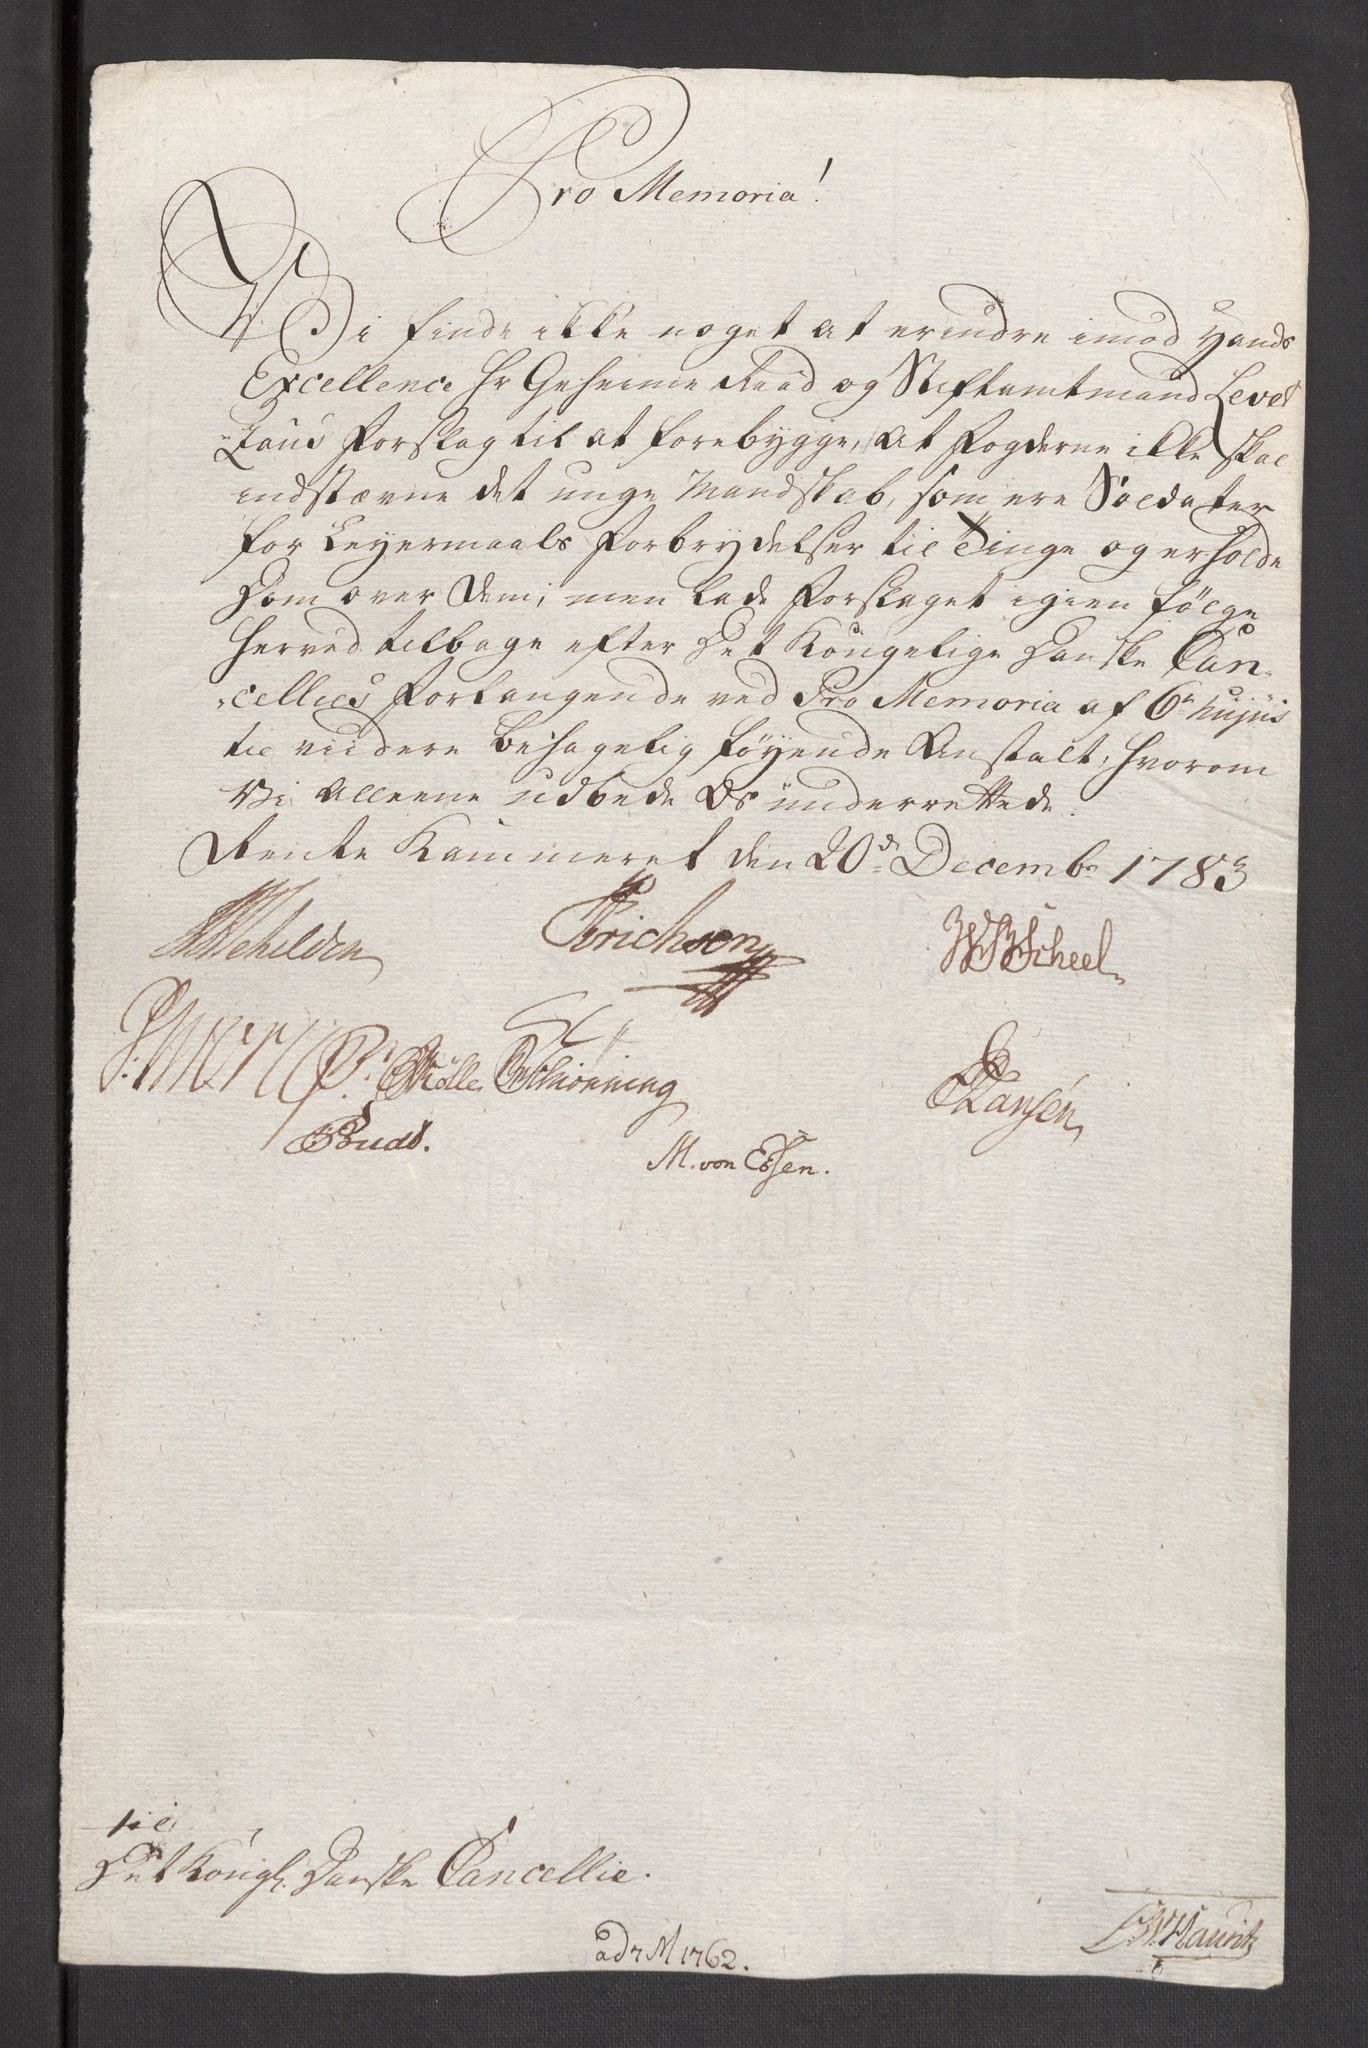 Pro Memoria!
Vi finde ikke noget at erindre imod Hands
Excellence Hr Geheime Raad og Stiftamtmand Levet
Zaus Forslag til at forebygge, at Fogderne ikke skal
indstævne det unge Mandskab, som ere Soldater
for Leyermaals Forbrydelser til Tinge og erholde
Dom over dem; men lade Forslaget igien følge
herved tilbage efter Det Kongelige Danske Can-
cellies Forlangende ved Pro Memoria af 6te hujus
til viidere behagelig føyende Anstalt, hvorom
Vi alleene udbede Os underrettede.
Rente Kammeret den 20de Decembr 1783
Schilden Erichsen Scheel
Mölle Schiönning Hansen
M. von Essen.
til
Det Kongl. Danske Cancellie.
ad M 1762.